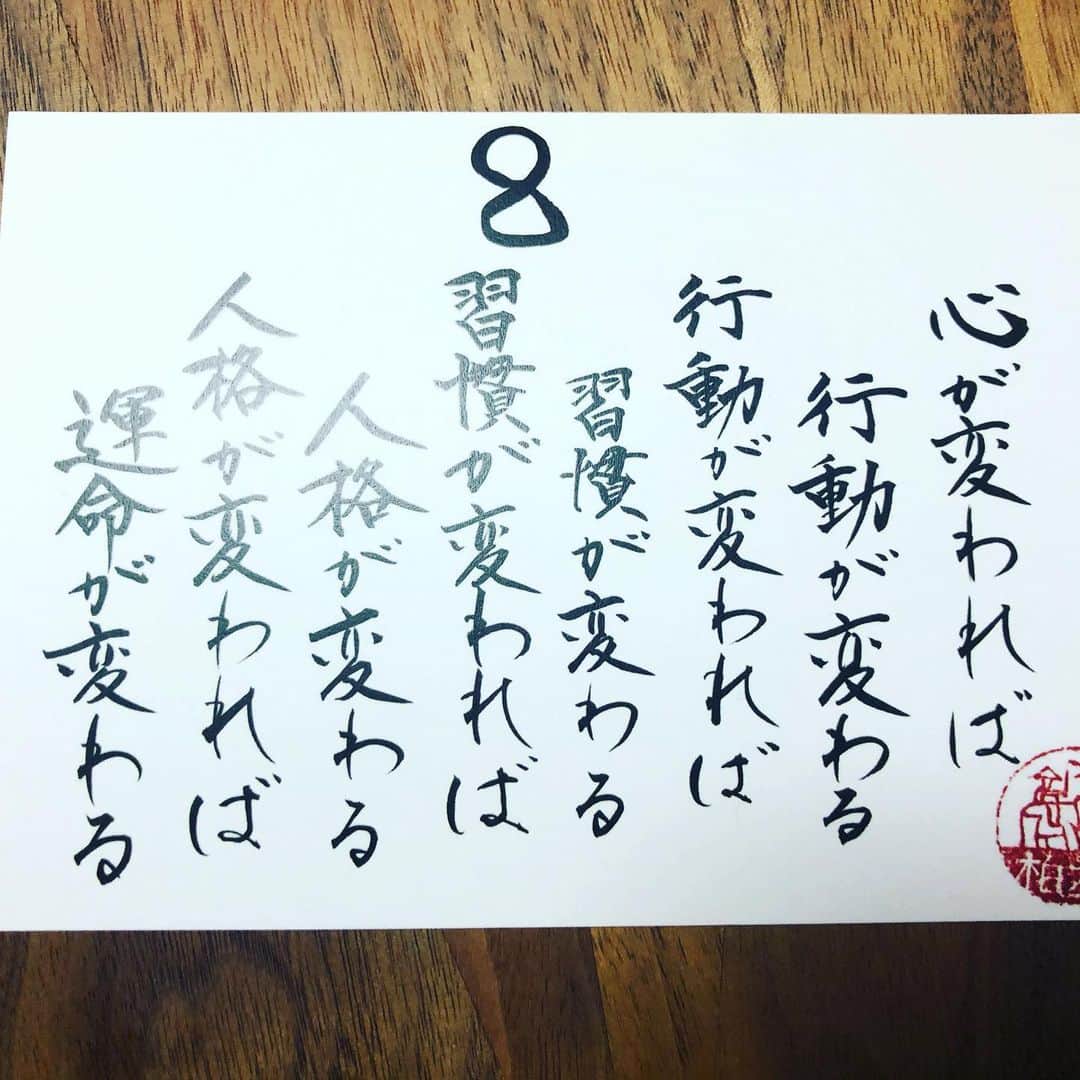 8
心が変われば
行動が変わる
行動が変われば
習慣が変わる
習慣が変われば
人格が変わる
人格が変われば
運命が変わる